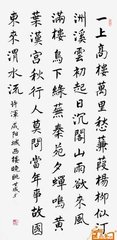 一上高樓萬里愁蒹葭楊柳似汀
洲溪雲初起日沉閣山雨欲來風
滿樓鳥下綠蕪秦苑夕蟬鳴黃
葉漢宮秋行人莫問當年事故國
東來渭水流
許渾咸陽城西樓晚眺